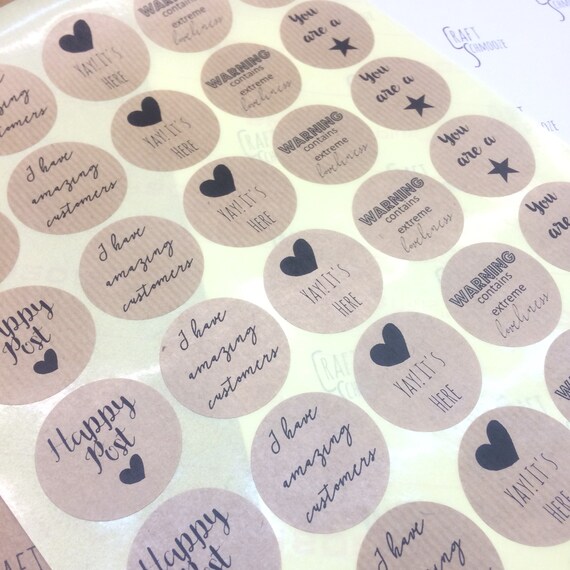 YAY! IT'S
HERE
WARNING
You are a
amazing
customers
YAY! IT'S
HERE
WARNING
contains
extreme
loveliness
You
are a
I have
amazing
customers
YAY! IT'S
HERE
WARNING
contains
extreme
loveliness
You
are a
I have
amazing
customers
YAY! IT'S
HERE
WARNING
contains
extreme
loveliness
You
are
Happy
Post
I have
amazing
customers
YAY! IT'S
HERE
WARNING
contains
extreme
loveliness
Happy
Post
I have
amazing
customers
YAY! IT'S
HERE
Happy
Post
I have
amazing
CRAFT
SCHMOOZE